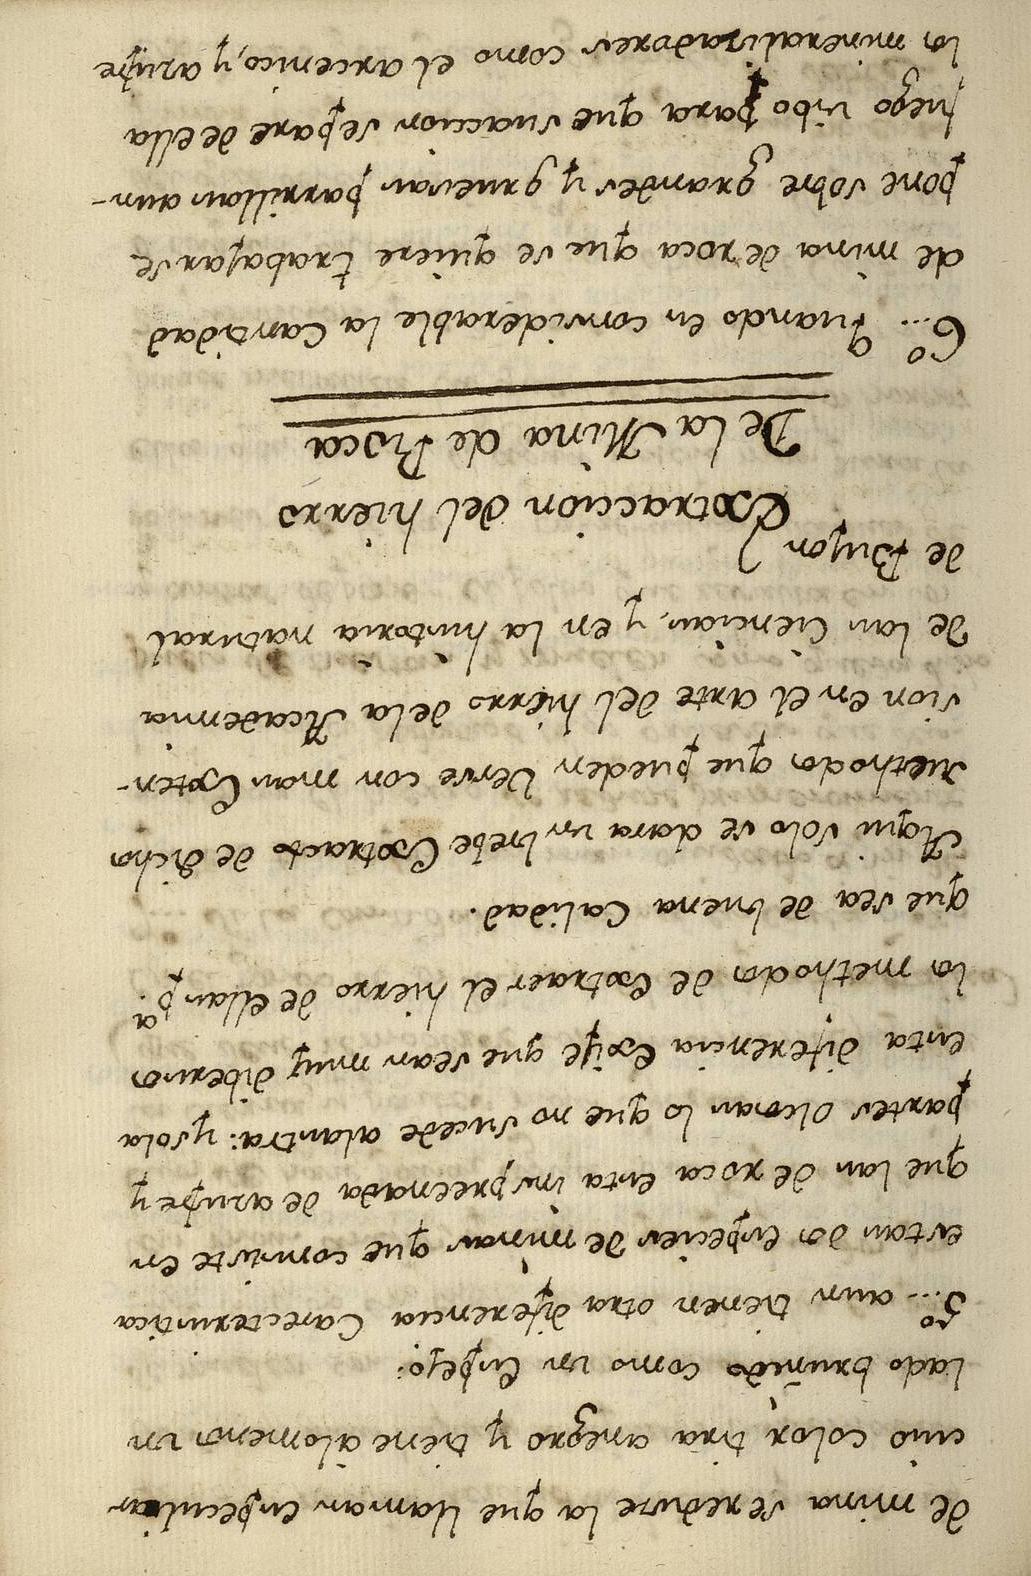 de mina se reduse la que llaman especular
cuio color tira anegro y tiene alomenos un
lado bruñido como un Espejo:
5º... aun tienen otra diferencia Carecteristica
estas dos especies de minas que consiste en
que las de roca esta inspreenada de azufre y
partes oliosas lo que no sucede alaotra: y sola
esta diferencia Exije que sean muy diberzos
los methodos de Extraer el hierro de ellas pª.
que sea de buena Calidad.
Aqui solo se dara un brebe Extracto de dichos
Methodos que pueden berse con mas Exten-
sion en el arte del hierro dela Academia
de las Ciencias, y en la historia natural
de Bufon)
Extraccion del hierro
De la Mina de Roca
6º... Quando es considerable la Cantidad
de mina de roca que se quiere trabajar se
pone sobre grandes y gruesas parrillas aun-
fuego vibo para que suaccion separe deella
los mineralizadores como el arcenico, y azufre